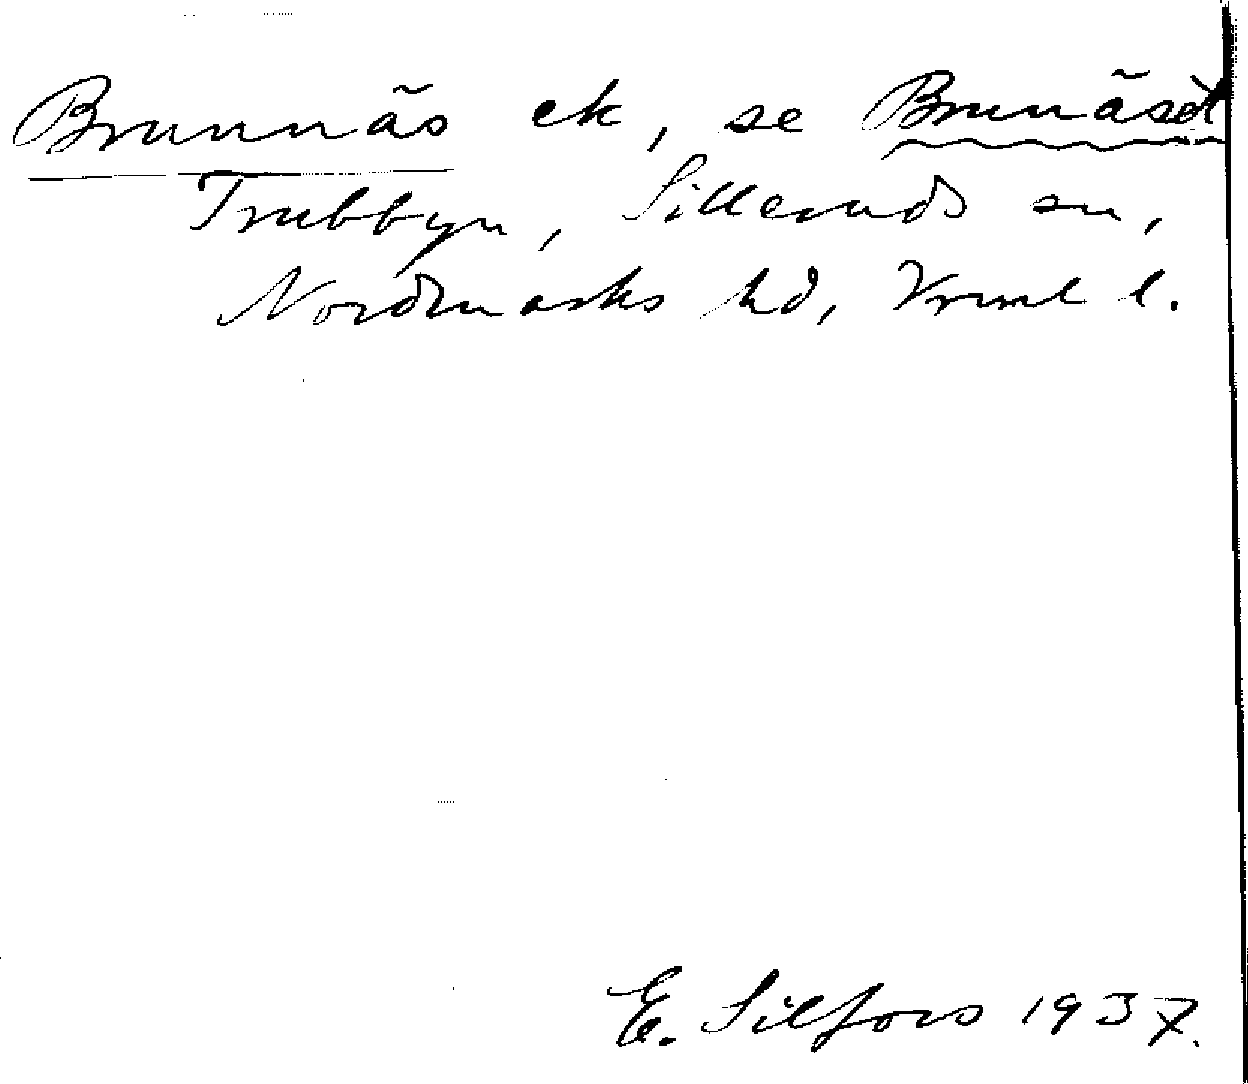 Brunnäs ek, se Brunäset
Trubbyn, Silleruds sn,
Nordmarks hd, Vrml l.
E. Silfors 1937.